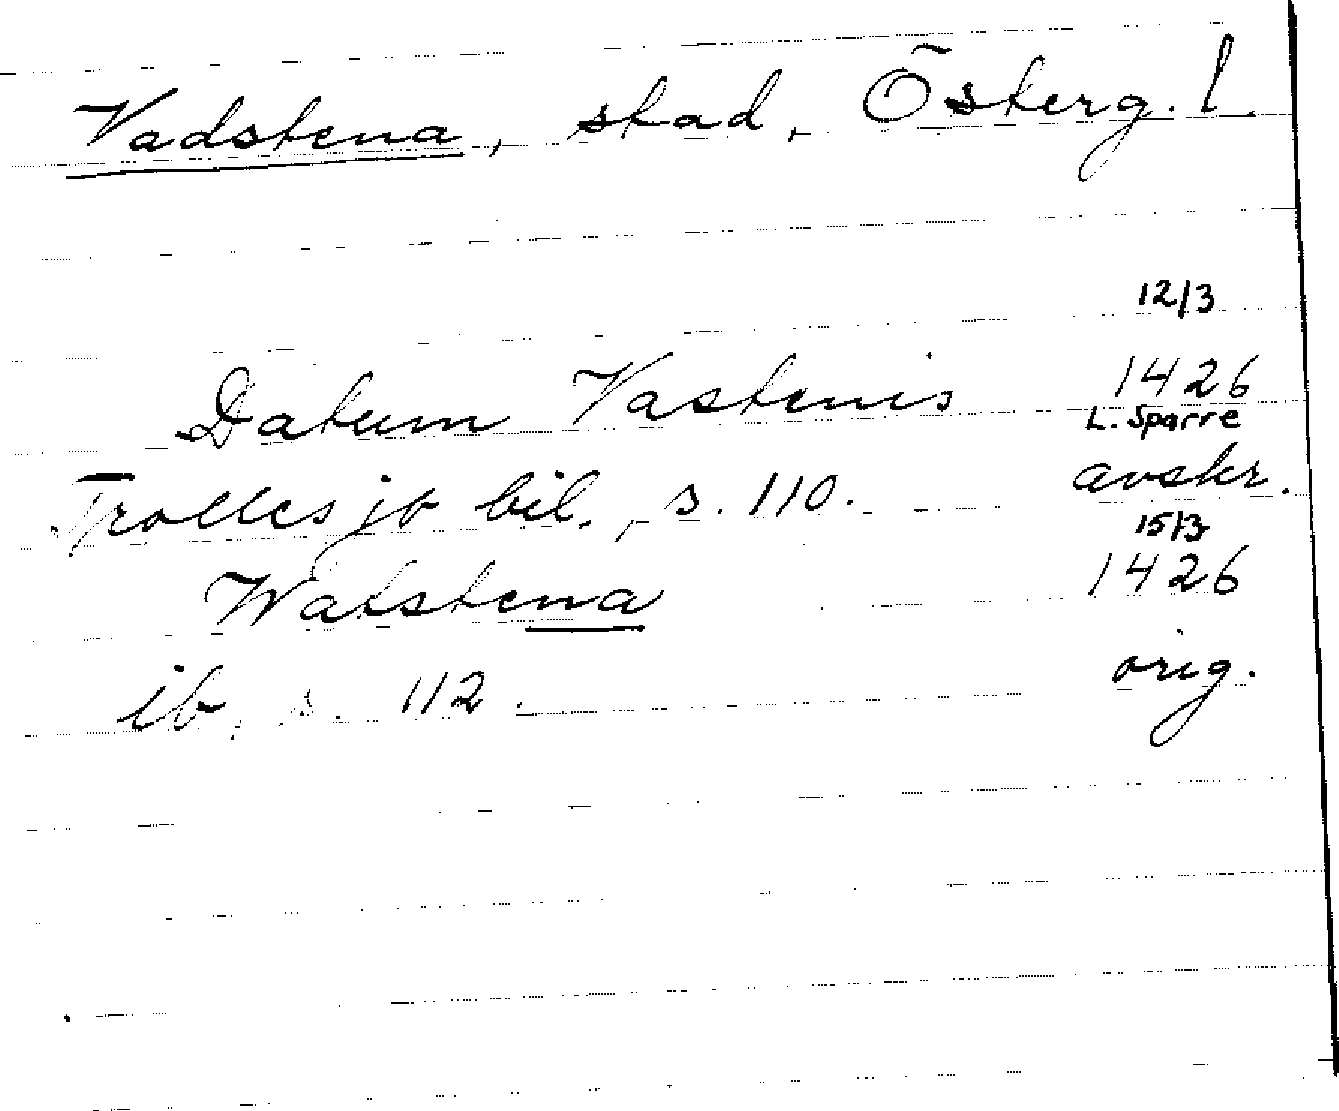 Vadstena, stad, Österg. l
12/3
Datum Vastenis 1426
L. Sparre
Trolles jb bil., s. 110. avskr.
15/3
Watstena 1426
ib, s. 112. orig.